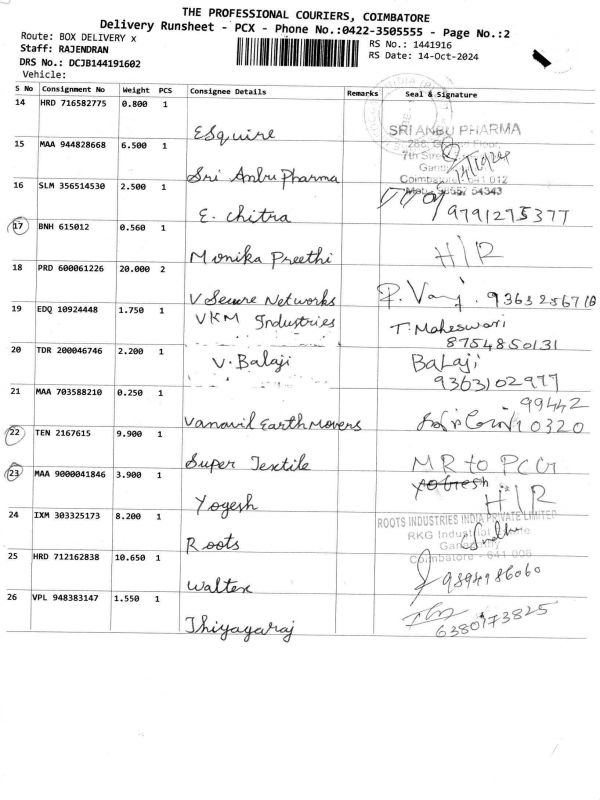 THE PROFESSIONAL COURIERS, COIMBATORE
Delivery Runsheet - PCX - Phone No.:0422-3505555 - Page No.:2
Route: BOX DELIVERY x
RS No.: 1441916
Staff: RAJENDRAN
RS Date: 14-Oct-2024
DRS No.: DCJB144191602
Vehicle:
S No Consignment No Weight PCS Consignee Details Remarks Seal & Signature
14 HRD 716582775 0.800 1
ESquire
SRI ANBU PHARMA
15 MAA 944828668 6.500 1
7th Street
14/10/24
Sri Anbu Pharma
Coimbatore 641 012
16 SLM 356514530 2.500 1
E. Chitra
9791275377
17 BNH 615012 0.560 1
Monika Preethi
H/R
18 PRD 600061226 20.000 2
V Secure Networks
9363256718
19 EDQ 10924448 1.750 1
VKM Industries
T. Maheswari
8754850131
20 TDR 200046746 2.200 1
V. Balaji
BaLaji
9363102977
21 MAA 703588210 0.250 1
99442
Vanavil Earth Movers
10320
22 TEN 2167615 9.900 1
Super Textile
MR to PCG
23 MAA 9000041846 3.900 1
Yogesh
H/R
24 IXM 303325173 8.200 1
ROOTS INDUSTRIES INDIA PRIVATE LIMITED
RKG Industrial Estate
Roots
Coimbatore - 641 006
25 HRD 712162838 10.650 1
Waltex
9894986060
26 VPL 948383147 1.550 1
Thiyagaraj
6380173825